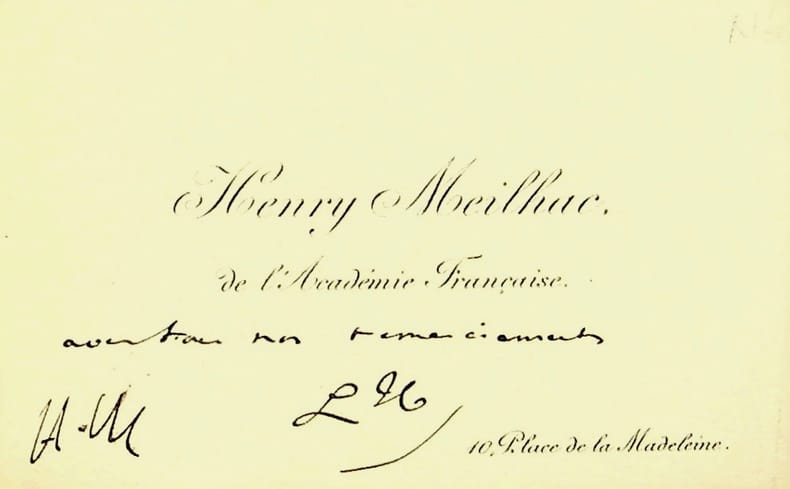 Henry Meilhac.
de l'Académie Française.
avec tous nos remerciements
H.M
L H
10, Place de la Madeleine.